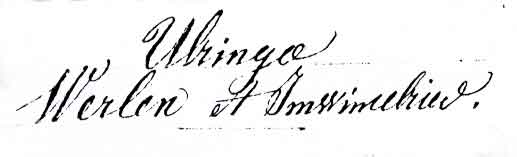 Ulringa
Werlen et Imwinelried.